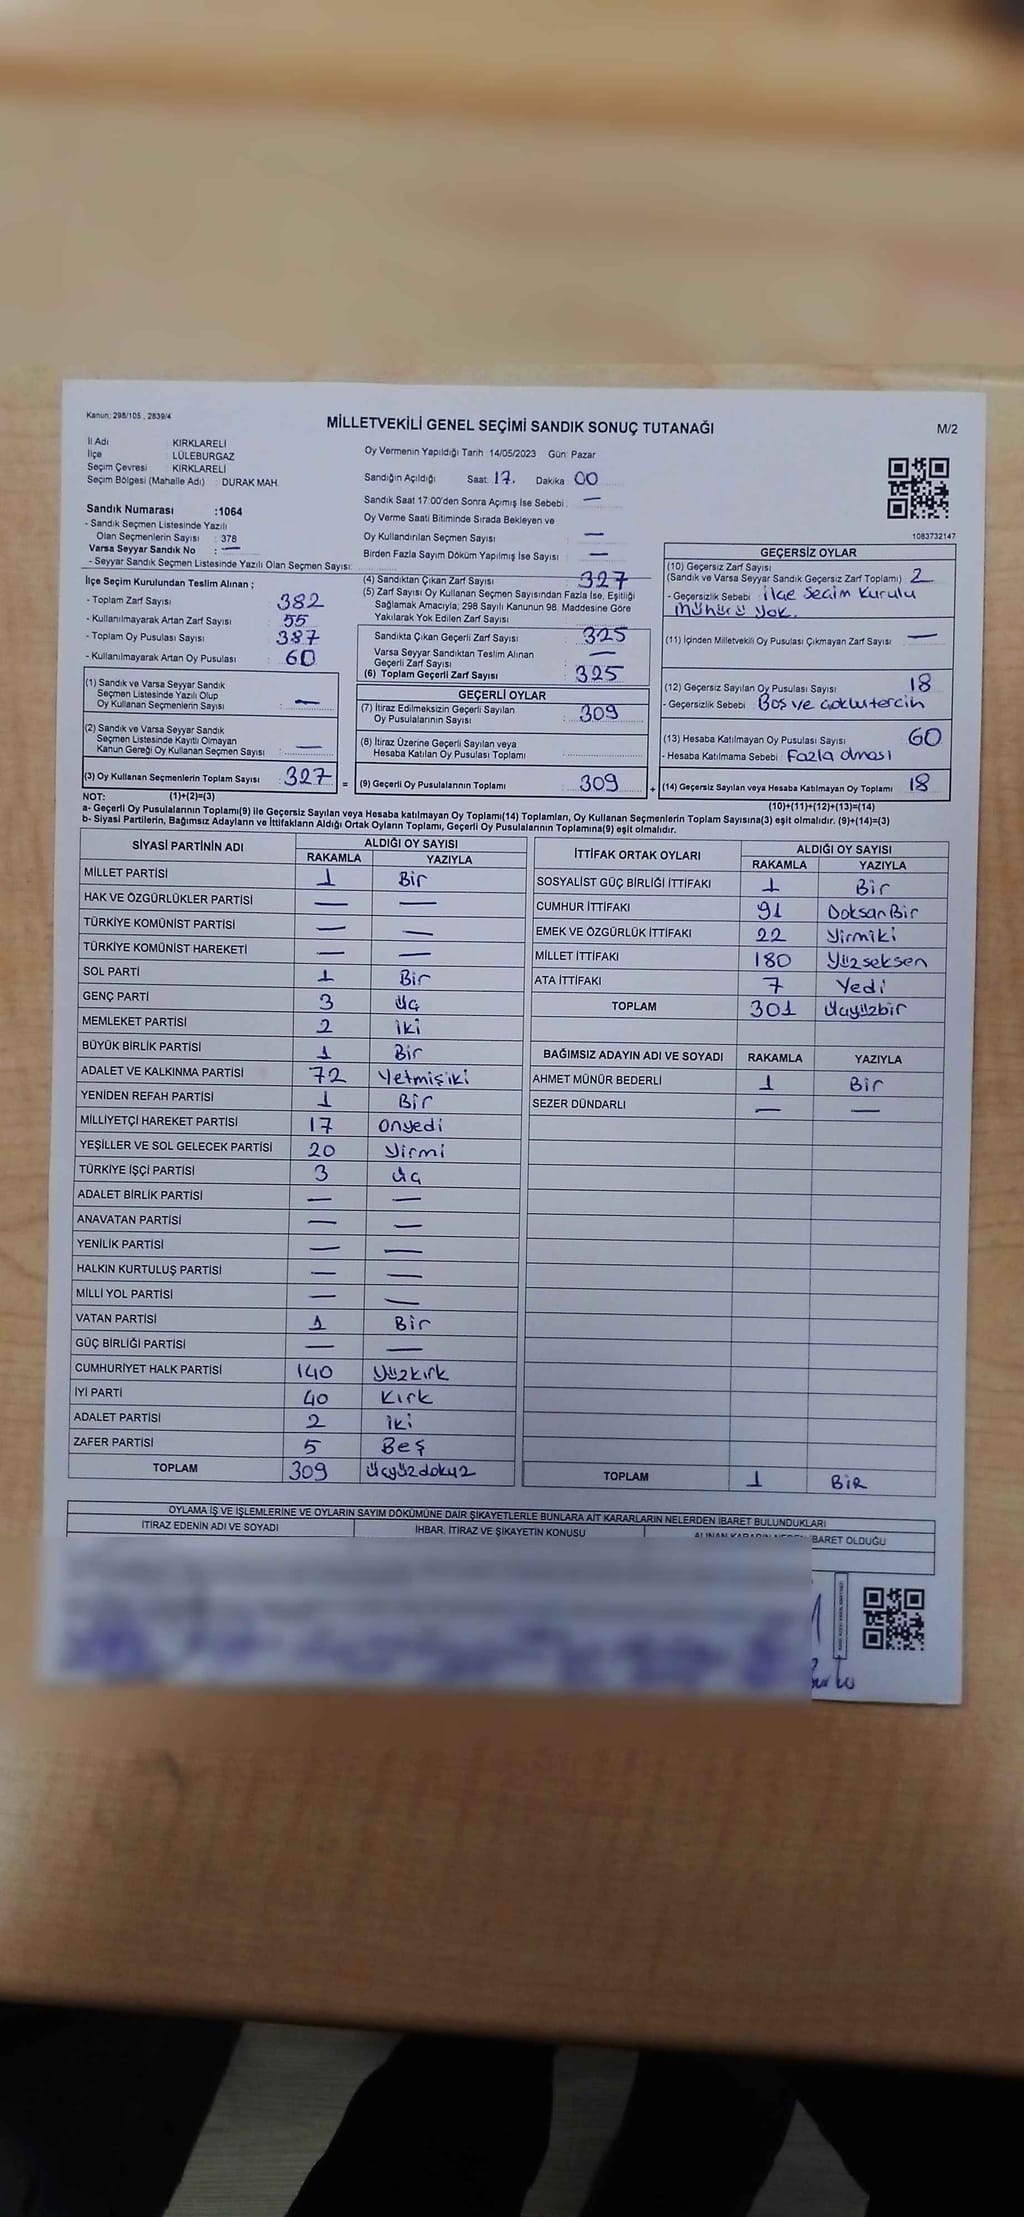 Kanun: 298/105 , 2839/4
MİLLETVEKİLİ GENEL SEÇİMİ SANDIK SONUÇ TUTANAĞI
M/2
İl Adı KIRKLARELİ
İlçe : LÜLEBURGAZ
Seçim Çevresi : KIRKLARELİ
Seçim Bölgesi (Mahalle Adı) : DURAK MAH.
Sandık Numarası :1064
- Sandık Seçmen Listesinde Yazılı
Olan Seçmenlerin Sayısı : 378
Varsa Seyyar Sandık No : —
- Seyyar Sandık Seçmen Listesinde Yazılı Olan Seçmen Sayısı:
Oy Vermenin Yapıldığı Tarih :14/05/2023 Gün: Pazar
Sandığın Açıldığı Saat: 17. Dakika: 00
Sandık Saat 17:00'den Sonra Açımış İse Sebebi : —
Oy Verme Saati Bitiminde Sırada Bekleyen ve
Oy Kullandırılan Seçmen Sayısı : —
Birden Fazla Sayım Döküm Yapılmış İse Sayısı : —
1083732147
İlçe Seçim Kurulundan Teslim Alınan ;
- Toplam Zarf Sayısı : 382
- Kullanılmayarak Artan Zarf Sayısı : 55
- Toplam Oy Pusulası Sayısı : 387
- Kullanılmayarak Artan Oy Pusulası : 60
(1) Sandık ve Varsa Seyyar Sandık
Seçmen Listesinde Yazılı Olup
Oy Kullanan Seçmenlerin Sayısı : —
(2) Sandık ve Varsa Seyyar Sandık
Seçmen Listesinde Kayıtlı Olmayan
Kanun Gereği Oy Kullanan Seçmen Sayısı : —
(3) Oy Kullanan Seçmenlerin Toplam Sayısı : 327 =
(4) Sandıktan Çıkan Zarf Sayısı : 327
(5) Zarf Sayısı Oy Kullanan Seçmen Sayısından Fazla İse, Eşitliği
Sağlamak Amacıyla; 298 Sayılı Kanunun 98. Maddesine Göre
Yakılarak Yok Edilen Zarf Sayısı :
Sandıkta Çıkan Geçerli Zarf Sayısı : 325
Varsa Seyyar Sandıktan Teslim Alınan
Geçerli Zarf Sayısı : —
(6) Toplam Geçerli Zarf Sayısı : 325
GEÇERLİ OYLAR
(7) İtiraz Edilmeksizin Geçerli Sayılan
Oy Pusulalarının Sayısı : 309
(8) İtiraz Üzerine Geçerli Sayılan veya
Hesaba Katılan Oy Pusulası Toplamı :
(9) Geçerli Oy Pusulalarının Toplamı : 309 +
GEÇERSİZ OYLAR
(10) Geçersiz Zarf Sayısı
(Sandık ve Varsa Seyyar Sandık Geçersiz Zarf Toplamı) : 2
- Geçersizlik Sebebi : İlçe Seçim Kurulu
Mühürü Yok.
(11) İçinden Milletvekili Oy Pusulası Çıkmayan Zarf Sayısı : —
(12) Geçersiz Sayılan Oy Pusulası Sayısı : 18
- Geçersizlik Sebebi : Boş ve çoklutercih
(13) Hesaba Katılmayan Oy Pusulası Sayısı : 60
- Hesaba Katılmama Sebebi : Fazla olması
(14) Geçersiz Sayılan veya Hesaba Katılmayan Oy Toplamı : 18
NOT: (1)+(2)=(3)
(10)+(11)+(12)+(13)=(14)
a- Geçerli Oy Pusulalarının Toplamı(9) ile Geçersiz Sayılan veya Hesaba katılmayan Oy Toplamı(14) Toplamları, Oy Kullanan Seçmenlerin Toplam Sayısına(3) eşit olmalıdır. (9)+(14)=(3)
b- Siyasi Partilerin, Bağımsız Adayların ve İttifakların Aldığı Ortak Oyların Toplamı, Geçerli Oy Pusulalarının Toplamına(9) eşit olmalıdır.
SİYASİ PARTİNİN ADI ALDIĞI OY SAYISI
RAKAMLA YAZIYLA
MİLLET PARTİSİ 1 Bir
HAK VE ÖZGÜRLÜKLER PARTİSİ — —
TÜRKİYE KOMÜNİST PARTİSİ — —
TÜRKİYE KOMÜNİST HAREKETİ — —
SOL PARTİ 1 Bir
GENÇ PARTİ 3 üç
MEMLEKET PARTİSİ 2 iki
BÜYÜK BİRLİK PARTİSİ 1 Bir
ADALET VE KALKINMA PARTİSİ 72 Yetmişiki
YENİDEN REFAH PARTİSİ 1 Bir
MİLLİYETÇİ HAREKET PARTİSİ 17 onyedi
YEŞİLLER VE SOL GELECEK PARTİSİ 20 yirmi
TÜRKİYE İŞÇİ PARTİSİ 3 üç
ADALET BİRLİK PARTİSİ — —
ANAVATAN PARTİSİ — —
YENİLİK PARTİSİ — —
HALKIN KURTULUŞ PARTİSİ — —
MİLLİ YOL PARTİSİ — —
VATAN PARTİSİ 1 Bir
GÜÇ BİRLİĞİ PARTİSİ — —
CUMHURİYET HALK PARTİSİ 140 yüzkırk
İYİ PARTİ 40 Kırk
ADALET PARTİSİ 2 iki
ZAFER PARTİSİ 5 Beş
TOPLAM 309 üçyüzdokuz
İTTİFAK ORTAK OYLARI ALDIĞI OY SAYISI
RAKAMLA YAZIYLA
SOSYALİST GÜÇ BİRLİĞİ İTTİFAKI 1 Bir
CUMHUR İTTİFAKI 91 DoksanBir
EMEK VE ÖZGÜRLÜK İTTİFAKI 22 yirmiki
MİLLET İTTİFAKI 180 yüzseksen
ATA İTTİFAKI 7 Yedi
TOPLAM 301 üçyüzbir
BAĞIMSIZ ADAYIN ADI VE SOYADI RAKAMLA YAZIYLA
AHMET MÜNÜR BEDERLİ 1 Bir
SEZER DÜNDARLI — —
TOPLAM 1 BİR
OYLAMA İŞ VE İŞLEMLERİNE VE OYLARIN SAYIM DÖKÜMÜNE DAİR ŞİKAYETLERLE BUNLARA AİT KARARLARIN NELERDEN İBARET BULUNDUKLARI
İTİRAZ EDENİN ADI VE SOYADI İHBAR, İTİRAZ VE ŞİKAYETİN KONUSU ALINAN KARARIN NEDEN İBARET OLDUĞU